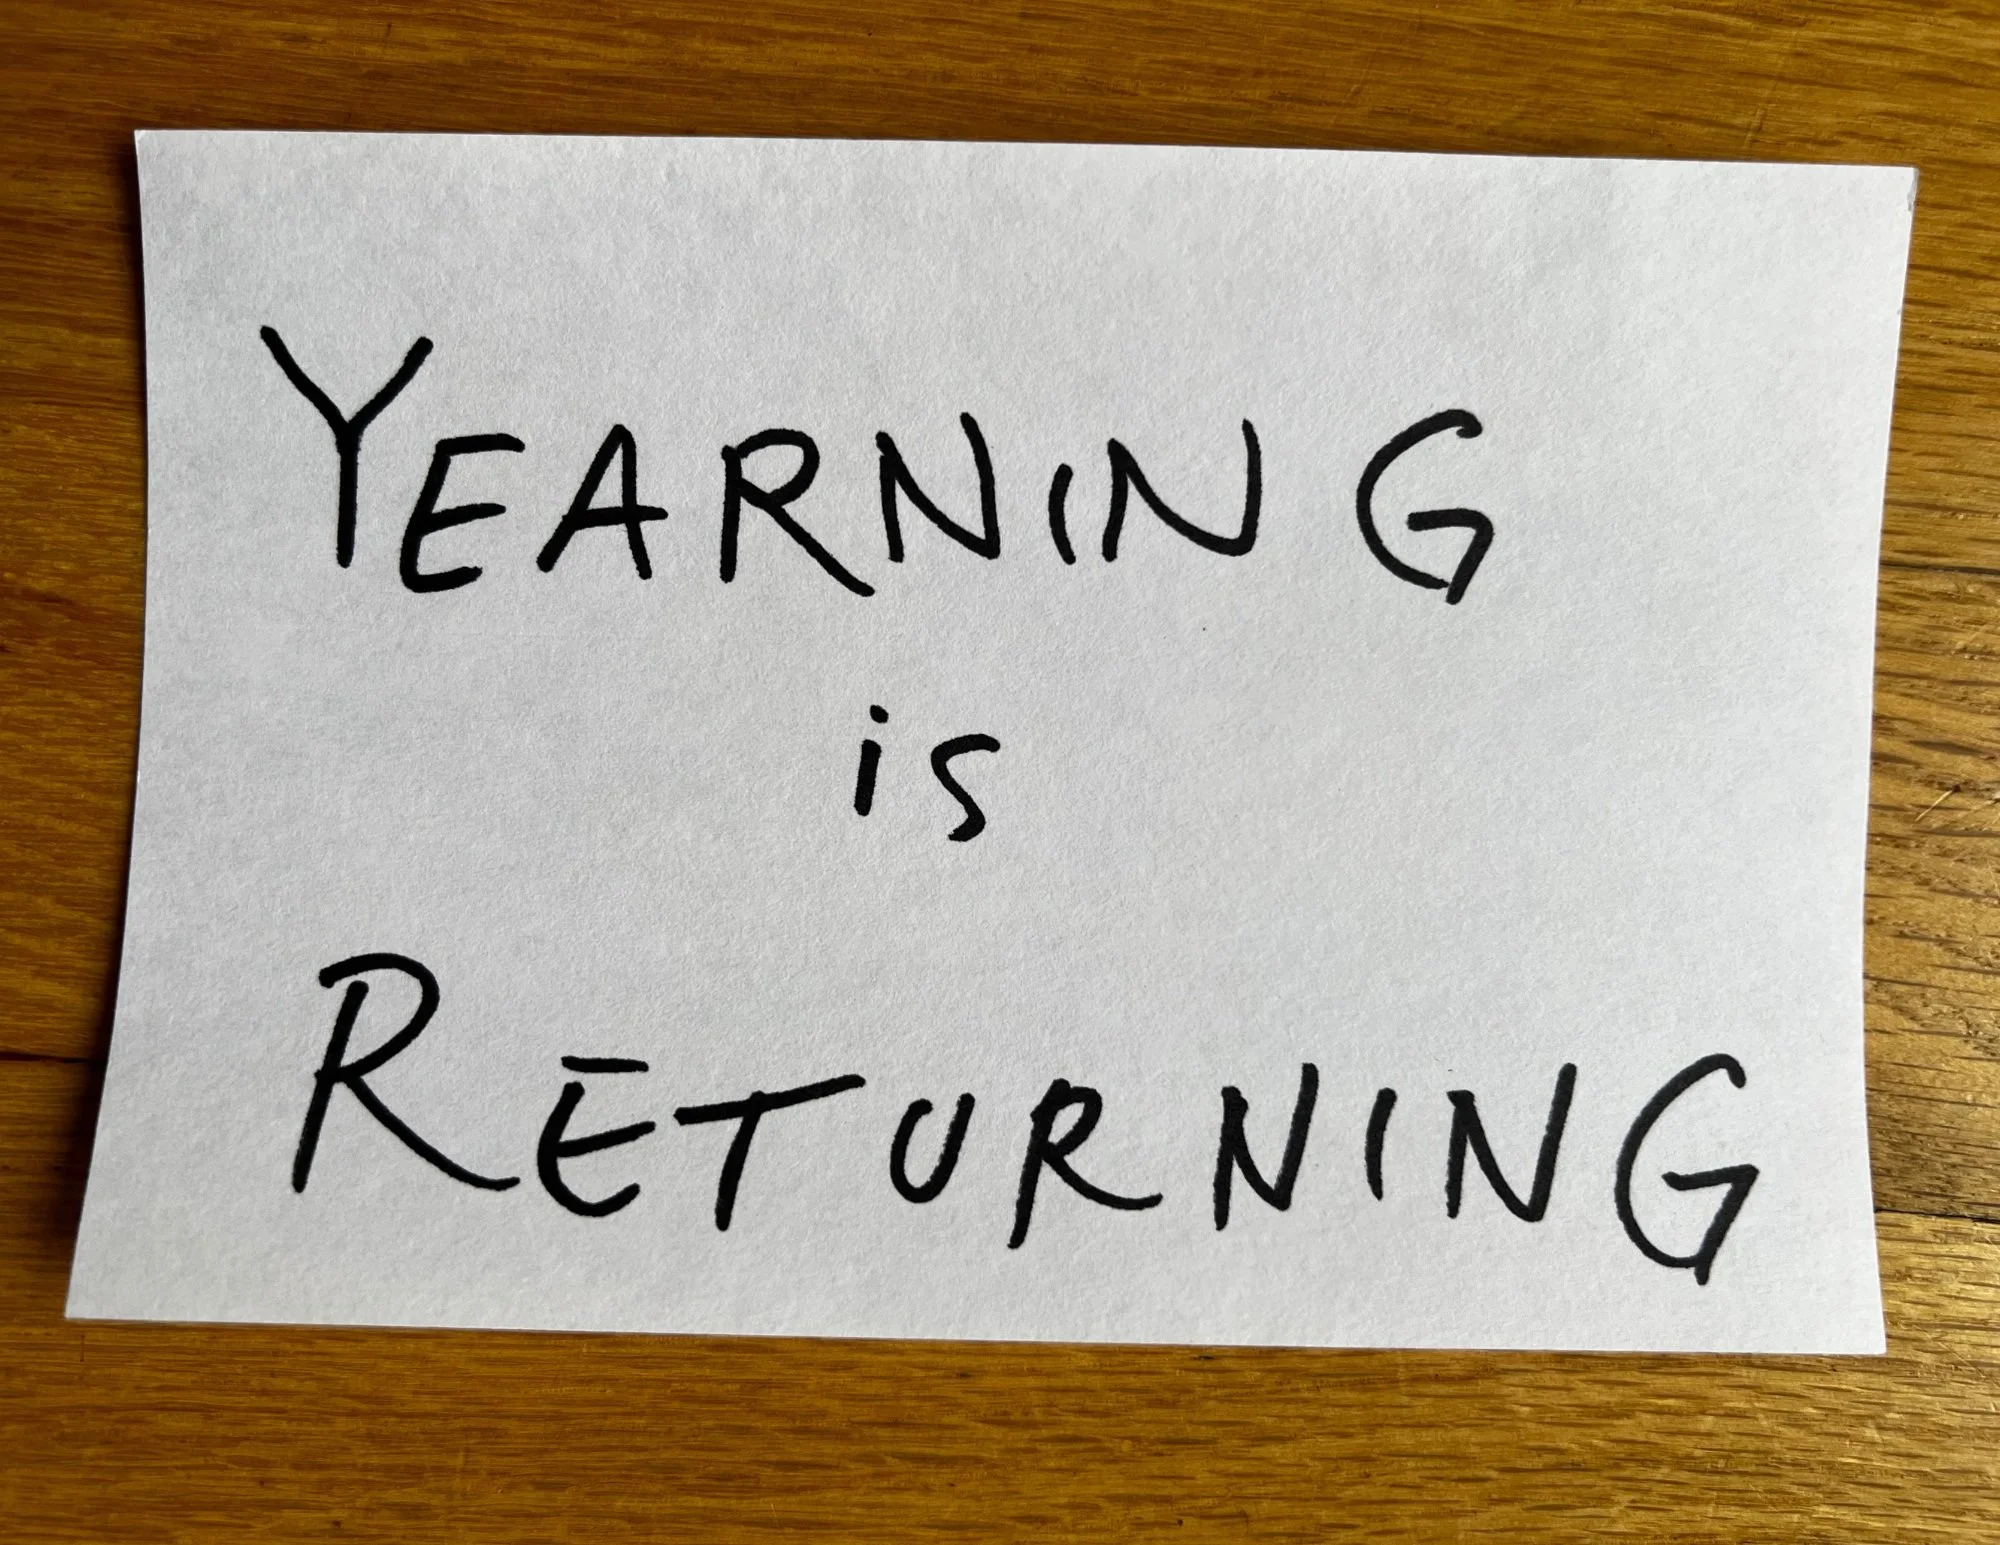 YEARNING
is
RETURNING